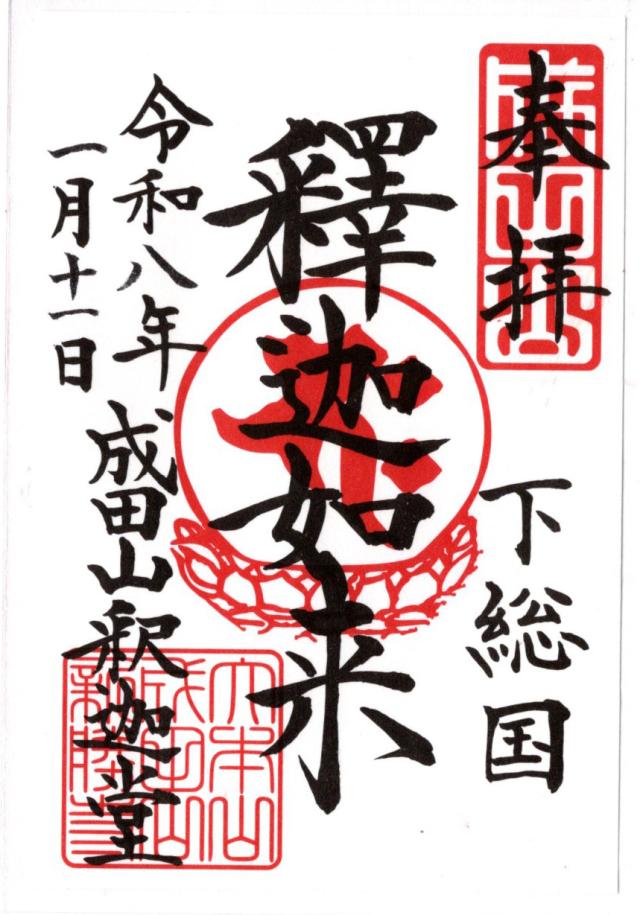 奉拝
下総国
釋迦如来
令和八年
一月十一日
成田山釈迦堂
大本山
成田山
新勝寺